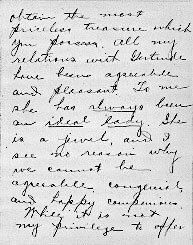 obtain the most
priceless treasure which
you possess. All my
relations with Gertrude
have been agreeable
and pleasant. To me
she has always been
an ideal lady. She
is a jewel, and I
see no reason why
we cannot be
agreeable, congenial,
and happy companions
While it is not
my privilege to offer